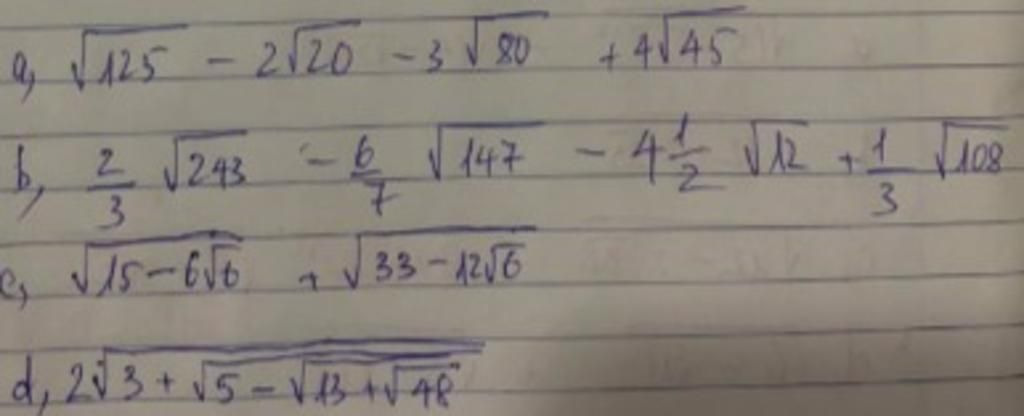 a, √125 - 2√20 - 3√80 + 4√45
b, 2/3 √243 - 6/7 √147 - 4 1/2 √12 + 1/3 √108
c, √(15-6√6) + √(33-12√6)
d, 2√(3+√(5-√(13+√48)))